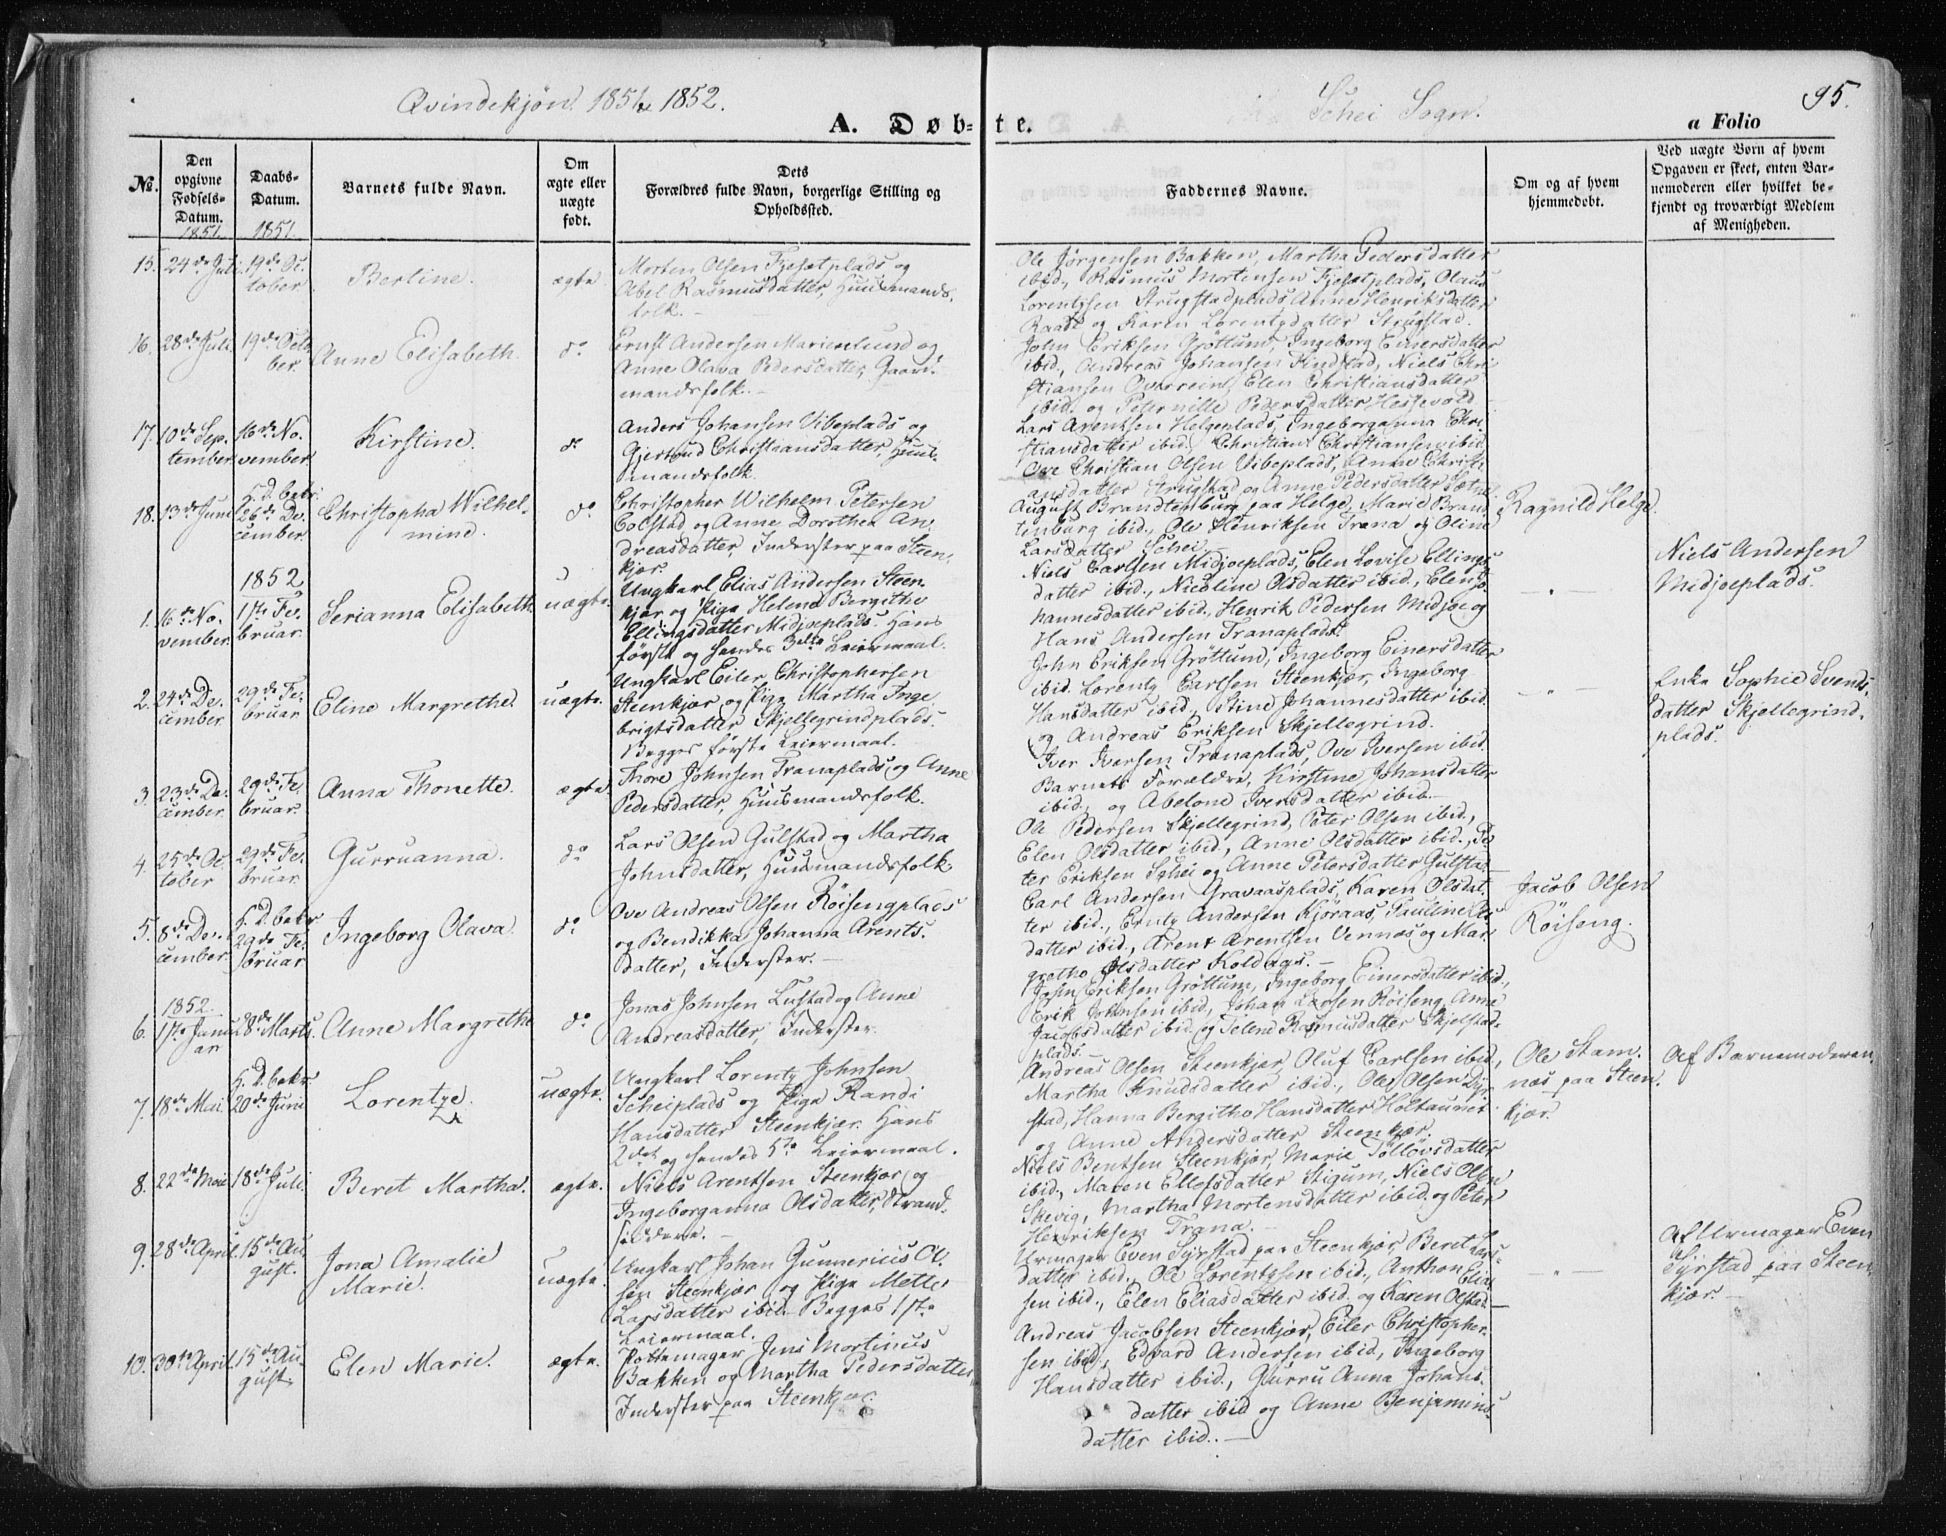 Qvindekjøn 1851 1852.
Schei Sogn.
95.
A. Døb-
te.
a Folio
No.
Den
opgivne
Fødsels-
Datum.
1851.
Daabs-
Datum.
1851.
Barnets fulde Navn.
Om
ægte eller
uægte
født.
Dets
Forældres fulde Navn, borgerlige Stilling og
Opholdssted.
Faddernes Navne.
Om og af hvem
hjemmedøbt.
Ved uægte Børn af hvem
Opgaven er skeet, enten Bar-
nemoderen eller hvilket be-
kjendt og troværdigt Medlem
af Menigheden.
15.
24de Juli.
19de Oc-
tober
Berline.
ægte
Morten Olsen Fjesetplads og
Abel Rasmusdatter, Huusmands-
folk.
Ole Jørgensen Bakken, Martha Pedersdatter
ibid, Rasmus Mortensen Fjesetplads, Olaus
Lorentsen Strugstadplads Anne Henriksdatter
og Karen Lorentsdatter Strugstad.
16.
28de Juli
19de Octo-
ber.
Anne Elisabeth.
do
Ernst Andersen Marienlund og
Anne Olava Pedersdatter, Gaard-
mandsfolk.
John Eriksen Grøttum, Ingeborg Einersdatter
ibid, Andreas Johansen Kindstad, Niels Chri-
stiansen Overrein, Elen Christiansdatter
ibid. og Peternille Pedersdatter
17.
10de Sep-
tember
16de No-
vember
Kirstine.
do
Anders Johansen Vibeplads og
Gjertrud Christiansdatter, Huus-
mandsfolk.
Lars Arentsen Helgeplads, Ingeborganna Chri-
stiansdatter ibid, Christian Christiansen ibid,
Ove Christian Olsen Vibeplads, Anne Christi-
ansdatter Strugstad og Anne Pedersdatter
18.
13de Juni
H. D. bekr.
26de De-
cember
Christopha Wilhel-
mine.
do
Christopher Wilhelm Petersen
Bolstad og Anne Dorothea An-
dreasdatter Inderster paa Steen-
kjær
August Brandtenburg paa Helge, Marie Brand-
tenburg ibid, Ole Henriksen Trana og Oline
Larsdatter Schei
Ragnild Helge.
1852
1.
16de No-
vember.
1ste Fe-
bruar.
Serianna Elisabeth
uægte.
Ungkarl Elias Andersen Steen-
kjær og Pige Helena Bergithe
Ellingsdatter Midjoeplads. Hans
første og hendes 3die Leiermaal.
Niels Carlsen Midjoeplads, Elen Lovise Ellings-
datter ibid., Nicoline Olsdatter ibid., Elen Jo-
hannesdatter ibid., Henrik Pedersen Midjoe og
Hans Andersen Tranaplads.
Niels Andersen
Midjoeplads.
2.
24de De-
cember.
29de Fe-
bruar
Eline Margrethe.
uægte.
Ungkarl Eiler Christophersen
Steenkjær og Pige Martha Inge-
brigtsdatter Skjellegrindplads.
Begges første Leiermaal.
John Eriksen Grøttum, Ingeborg Einersdatter
ibid. Lorents Carlsen Steenkjær, Ingeborg
Hansdatter ibid., Stine Johannesdatter ibid
og Andreas Eriksen Skjellegrind.
Enke Sophie Svends-
datter Skjellegrind-
plads.
3.
23de De-
cember.
29de Fe-
bruar.
Anna Thonette.
ægte
Thore Johnsen Tranaplads og Anne
Pedersdatter, Huusmandsfolk.
Iver Iversen Tranaplads, Ove Iversen ibid.
Barnets Forældre, Kirstine Johansdatter
ibid, og Abelone Iversdatter ibid.
4.
25de Oc-
tober
29de Fe-
bruar.
Gurruanna.
do
Lars Olsen Gulstad og Martha
Johnsdatter, Huusmandsfolk.
Ole Pedersen Skjellegrind, Peter Olsen ibid.,
Elen Olsdatter ibid., Anne Olsdatter ibid., Pe-
ter Eriksen Schei og Anne Petersdatter Gulstad.
5.
8de De-
cember.
H. D. bekr
29de Fe-
bruar
Ingeborg Olava.
do
Ove Andreas Olsen Røisengplads
og Bendikka Johanna Arents-
datter, Inderster.
Carl Andersen Gravaasplads, Karen Olsdat-
ter ibid., Ernts Andersen Kjøraas, Pauline Ols-
datter ibid., Arent Arentsen Vennæs og Mar-
grethe Olsdatter
Jacob Olsen
Røiseng.
1852.
6.
1ste Janu-
ar
28de Marts.
Anne Margrethe
do
Jonas Johnsen Lustad og Anne
Andreasdatter, Inderster.
John Eriksen Grøttum, Ingeborg Einersdatter ibid.,
Erik Johnsen ibid, Johan Larsen Røiseng, Anne
Jacobsdatter ibid. og Telene Rasmusdatter Skjelstad-
plads.
7.
18de Mai.
H. D. bekr
20de Juni
Lorentze.
uægte.
Ungkarl Lorents Johnsen
Scheiplads og Pige Randi
Hansdatter Steenkjær. Hans
2det og hendes 5te Leiermaal.
Andreas Olsen Steenkjær, Oluf Carlsen ibid,
Martha Knudsdatter ibid., Ole Olsen Dyr-
stad, Hanna Bergithe Hansdatter
og Anne Andersdatter Steenkjær.
Ole Stam-
næs paa Steen-
kjær.
Af Barnemoderen.
8.
22de Mai
18de Juli.
Beret Martha.
ægte.
Niels Arentsen Steenkjær og
Ingeborganna Olsdatter, Strand-
siddere.
Niels Bentsen Steenkjær, Marie Tolløvsdatter
ibid., Maren Ellefsdatter Stigum, Niels Olsen
Skevig, Martha Mortensdatter ibid. og Peter
Henriksen Trana.
9.
28de April.
15de Au-
gust.
Jona Amalie
Marie.
uægte.
Ungkarl Johan Gunnerius Ol-
sen Steenkjær og Pige Mette
Larsdatter ibid. Begges 1ste
Leiermaal.
Urmager Even Syrstad paa Steenkjær, Beret Lars-
datter ibid., Ole Lorentsen ibid., Anthon Elia-
sen ibid., Elen Eliasdatter ibid. og Karen Olstad.
Af Urmager Even
Syrstad paa Steen-
kjær.
10.
30te April.
15de Au-
gust.
Elen Marie.
ægte.
Pottemager Jens Mortinus
Bakken og Martha Pedersdatter,
Inderster paa Steenkjær.
Andreas Jacobsen Steenkjær, Eiler Christopher-
sen ibid, Edvard Andersen ibid, Ingeborg
Hansdatter ibid., Gurru Anna Johans-
datter ibid og Anne Benjamins-
datter ibid.